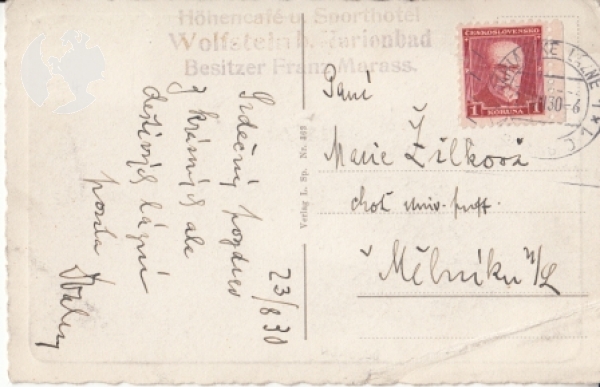 Höhencafé u. Sporthotel
Wolfstein b. Marienbad
Besitzer Franz Marass.
ČESKOSLOVENSKO
1 KORUNA 1
LÁZNĚ
30-6
Verlag L. Sp. Nr. 465
Srdečný pozdrav
z krásných ale
deštivých lázní
23/8 30
Paní
Marie Žilková
choť univ. prof.
v Mělníku n/L